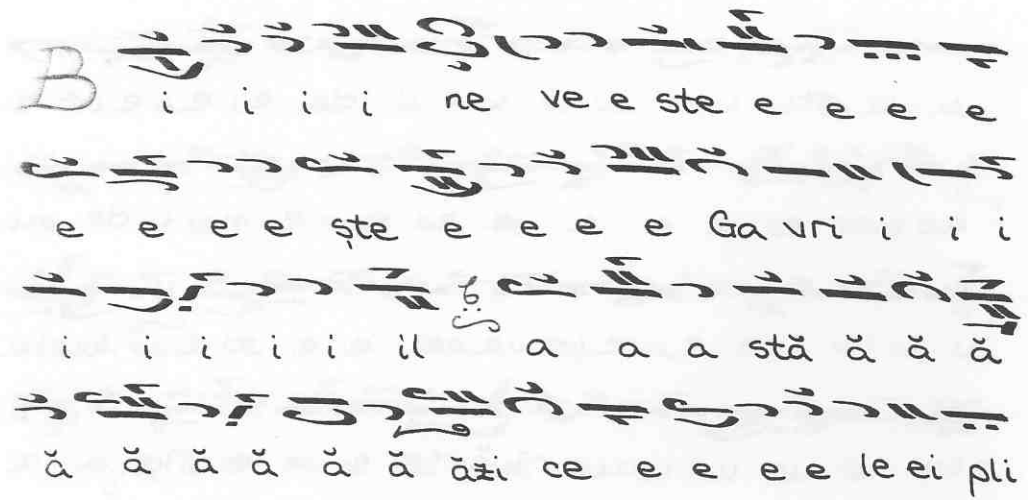 B i i i i ne ve e ste e e e e
e e e e ște e e e e Ga vri i i i
i i i i i il a a a stă ă ă ă
ă ă ă ă ă ă ăzi ce e e e e le ei pli